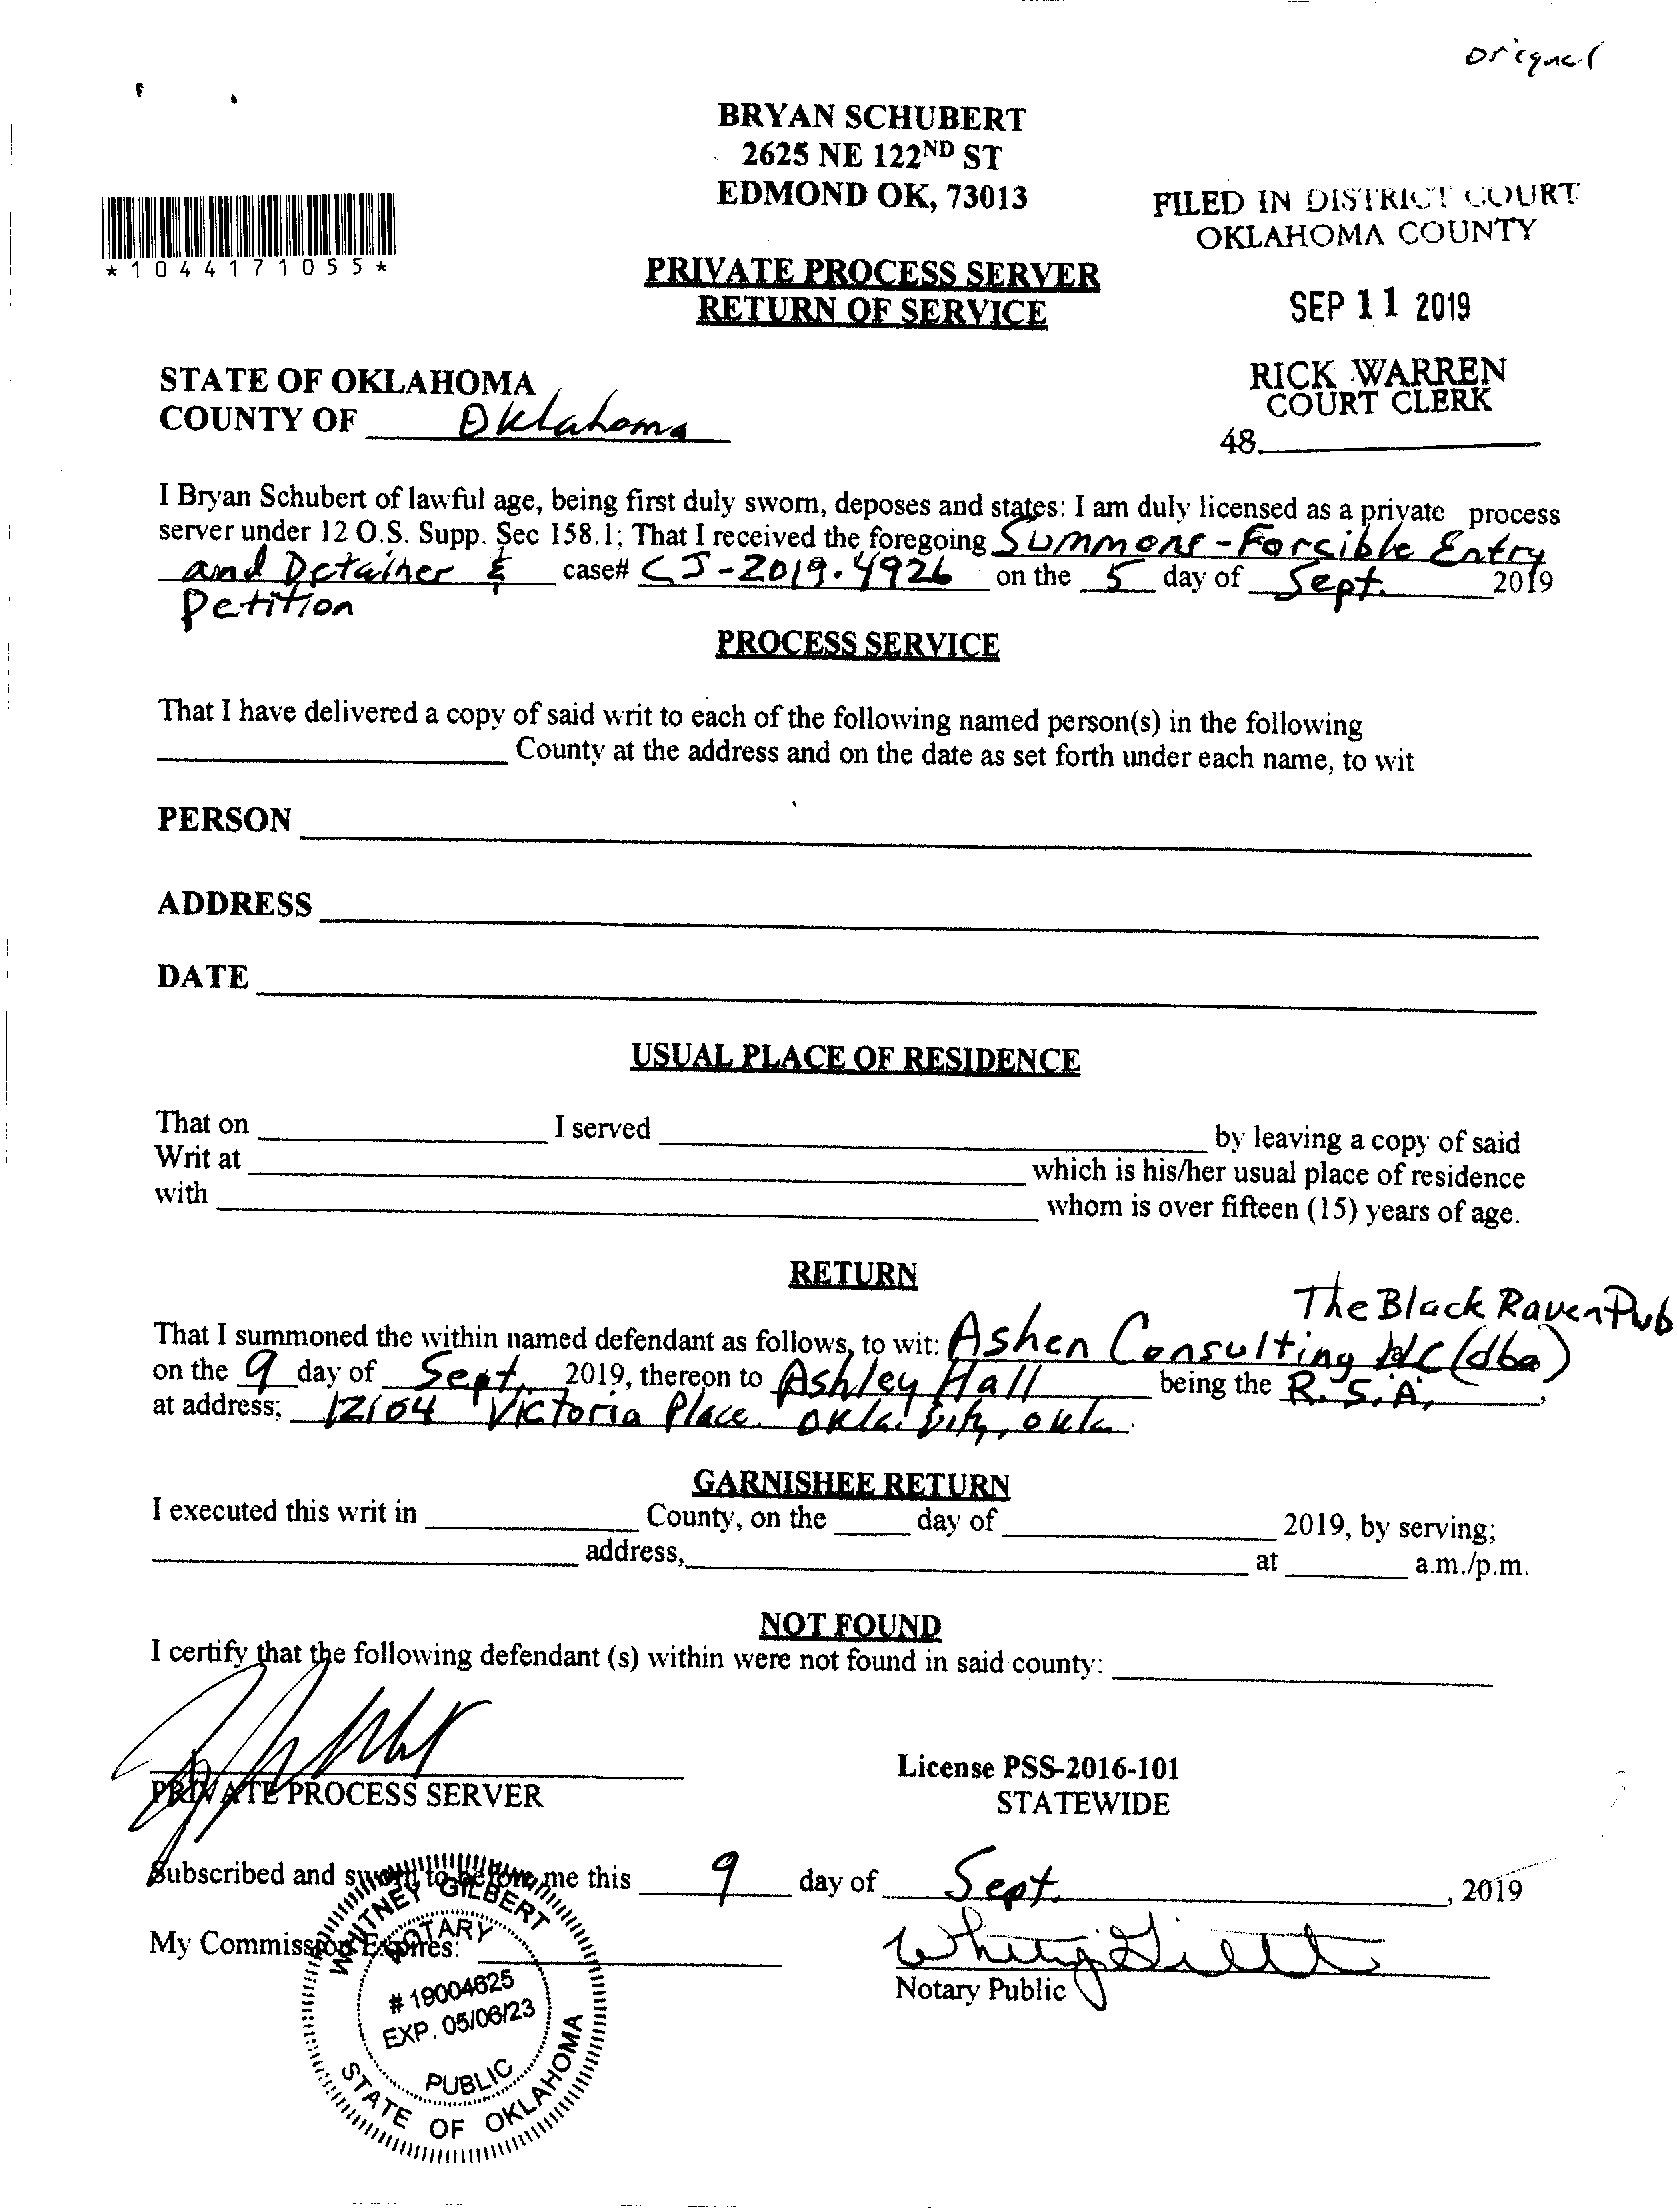 Original
BRYAN SCHUBERT
2625 NE 122ND ST
EDMOND OK, 73013
FILED IN DISTRICT COURT
OKLAHOMA COUNTY
*1044171055*
PRIVATE PROCESS SERVER
RETURN OF SERVICE
SEP 11 2019
RICK WARREN
COURT CLERK
48
STATE OF OKLAHOMA
COUNTY OF Oklahoma
I Bryan Schubert of lawful age, being first duly sworn, deposes and states: I am duly licensed as a private process
server under 12 O.S. Supp. Sec 158.1; That I received the foregoing Summons - Forcible Entry
and Detainer & case# CJ-2019-4926 on the 5 day of Sept. 2019
Petition
PROCESS SERVICE
That I have delivered a copy of said writ to each of the following named person(s) in the following
County at the address and on the date as set forth under each name, to wit
PERSON
ADDRESS
DATE
USUAL PLACE OF RESIDENCE
That on I served by leaving a copy of said
Writ at which is his/her usual place of residence
with whom is over fifteen (15) years of age.
RETURN
The Black Raven Pub
That I summoned the within named defendant as follows, to wit: Ashen Consulting LLC (dba)
on the 9 day of Sept. 2019, thereon to Ashley Hall being the R.S.A.,
at address; 12104 Victoria Place Okla. City, Okla.
GARNISHEE RETURN
I executed this writ in County, on the day of 2019, by serving;
address, at a.m./p.m.
NOT FOUND
I certify that the following defendant (s) within were not found in said county:
PRIVATE PROCESS SERVER
License PSS-2016-101
STATEWIDE
Subscribed and sworn to before me this 9 day of Sept. , 2019
My Commission Expires:
Notary Public
WHITNEY GILBERT
NOTARY
# 19004625
EXP. 05/06/23
PUBLIC
STATE OF OKLAHOMA